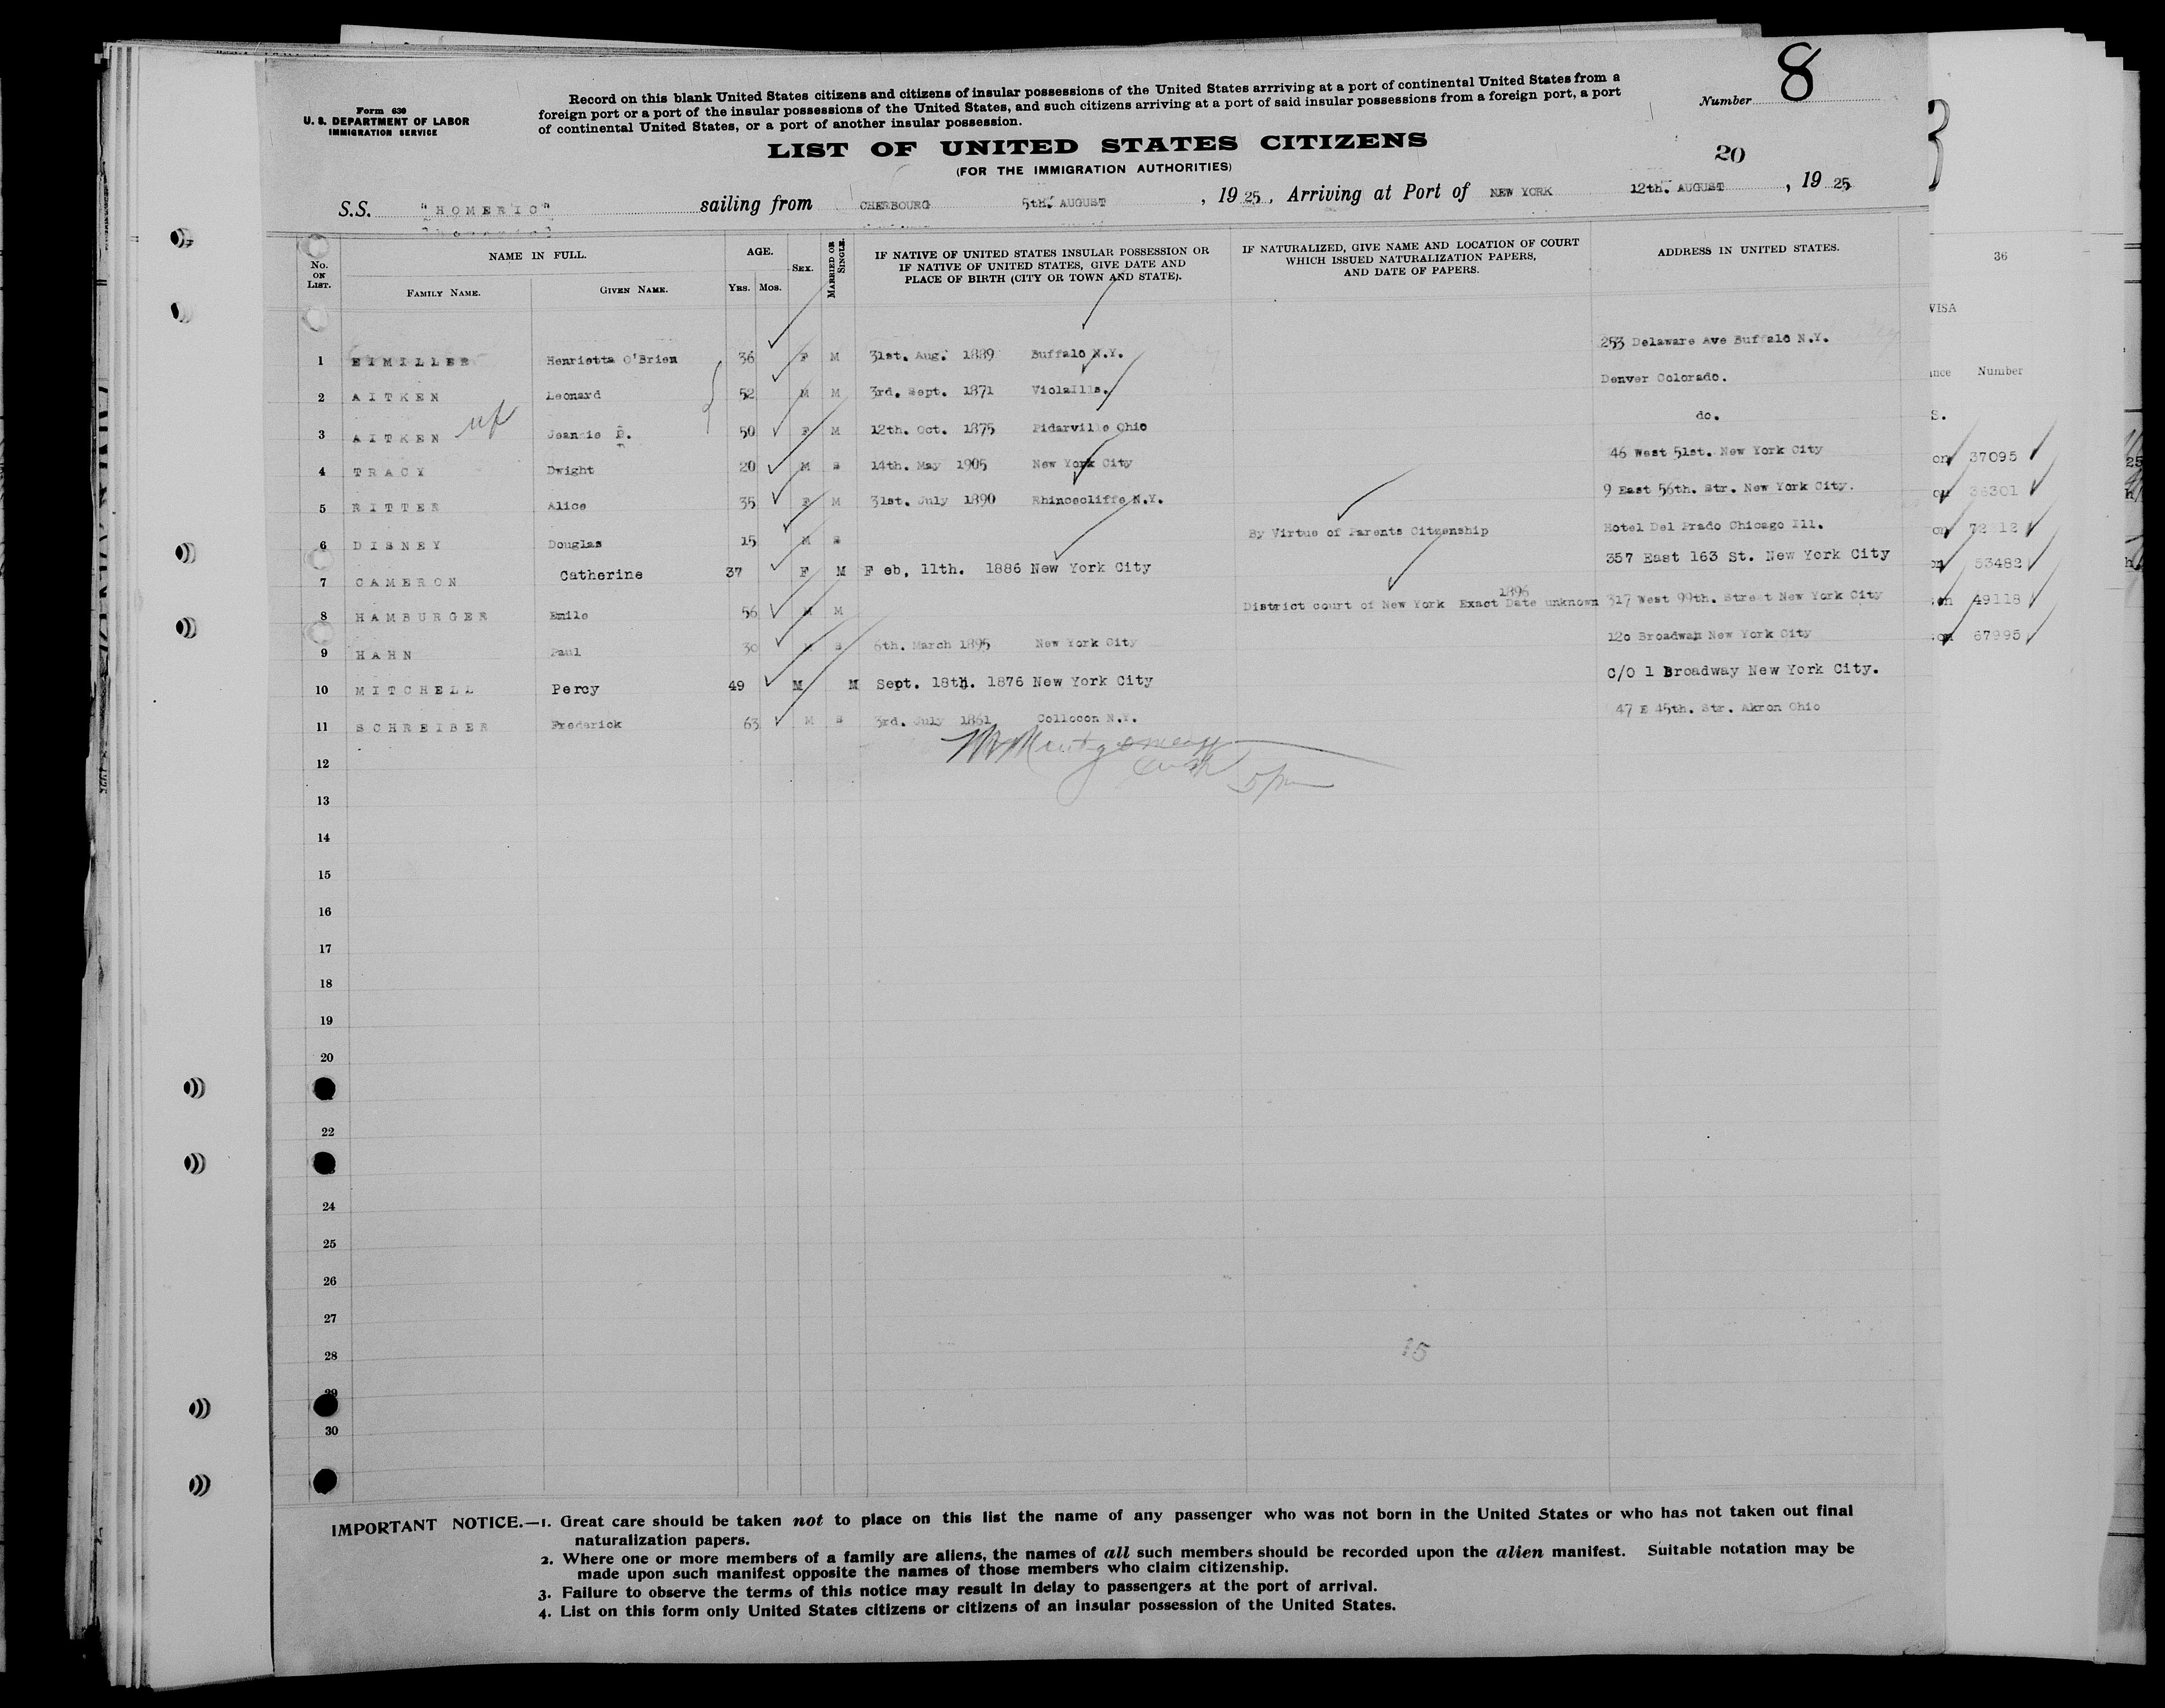 8
Form 630
U. S. DEPARTMENT OF LABOR
IMMIGRATION SERVICE
Record on this blank United States citizens and citizens of insular possessions of the United States arrriving at a port of continental United States from a
foreign port or a port of the insular possessions of the United States, and such citizens arriving at a port of said insular possessions from a foreign port, a port
of continental United States, or a port of another insular possession.
Number
LIST OF UNITED STATES CITIZENS
(FOR THE IMMIGRATION AUTHORITIES)
20
S.S. "HOMERIC" sailing from CHERBOURG 5th. AUGUST, 1925, Arriving at Port of NEW YORK 12th. AUGUST, 1925
No. ON LIST.
NAME IN FULL.
FAMILY NAME. GIVEN NAME.
AGE.
YRS. MOS.
SEX.
MARRIED OR SINGLE.
IF NATIVE OF UNITED STATES INSULAR POSSESSION OR
IF NATIVE OF UNITED STATES, GIVE DATE AND
PLACE OF BIRTH (CITY OR TOWN AND STATE).
IF NATURALIZED, GIVE NAME AND LOCATION OF COURT
WHICH ISSUED NATURALIZATION PAPERS,
AND DATE OF PAPERS.
ADDRESS IN UNITED STATES.
36
VISA
Number
1 EIMILLER Henrietta O'Brien 36 F M 31st. Aug. 1889 Buffalo N.Y. 253 Delaware Ave Buffalo N.Y.
2 AITKEN Leonard 52 M M 3rd. Sept. 1871 ViolaIlls. Denver Colorado.
3 AITKEN Jeannie B. 50 F M 12th. Oct. 1875 Pidarville Ohio do.
4 TRACY Dwight 20 M S 14th. May 1905 New York City 46 West 51st. New York City
37095
5 RITTER Alice 35 F M 31st. July 1890 Rhincecliffe N.Y. 9 East 56th. Str. New York City.
6 DISNEY Douglas 15 M S By Virtue of Parents Citzenship Hotel Del Prado Chicago Ill.
7 CAMERON Catherine 37 F M F eb, 11th. 1886 New York City 357 East 163 St. New York City
53482
8 HAMBURGER Emile 56 M M District court of New York Exact Date unknown 1896 317 West 99th. Street New York City
49118
9 HAHN Paul 30 M S 6th. March 1895 New York City 120 Broadway New York City
67995
10 MITCHELL Percy 49 M M Sept. 18th. 1876 New York City C/O 1 Broadway New York City.
11 SCHREIBER Frederick 63 M S 3rd. July 1861 Collocon N.Y. 47 E 45th. Str. Akron Ohio
12
13
14
15
16
17
18
19
20
22
24
25
26
27
28
15
29
30
IMPORTANT NOTICE.—1. Great care should be taken not to place on this list the name of any passenger who was not born in the United States or who has not taken out final
naturalization papers.
2. Where one or more members of a family are aliens, the names of all such members should be recorded upon the alien manifest. Suitable notation may be
made upon such manifest opposite the names of those members who claim citizenship.
3. Failure to observe the terms of this notice may result in delay to passengers at the port of arrival.
4. List on this form only United States citizens or citizens of an insular possession of the United States.